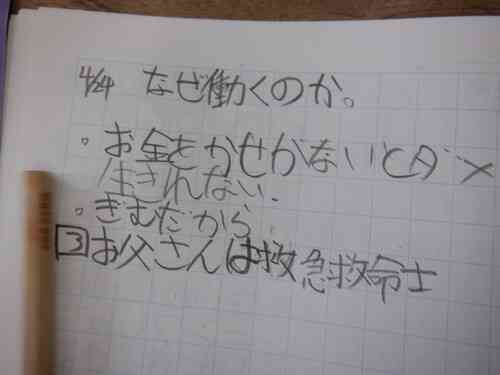 4/24 なぜ働くのか。
。お金をかせがないとダメ
生きれない.
。ぎむだから
3 お父さんは救急救命士